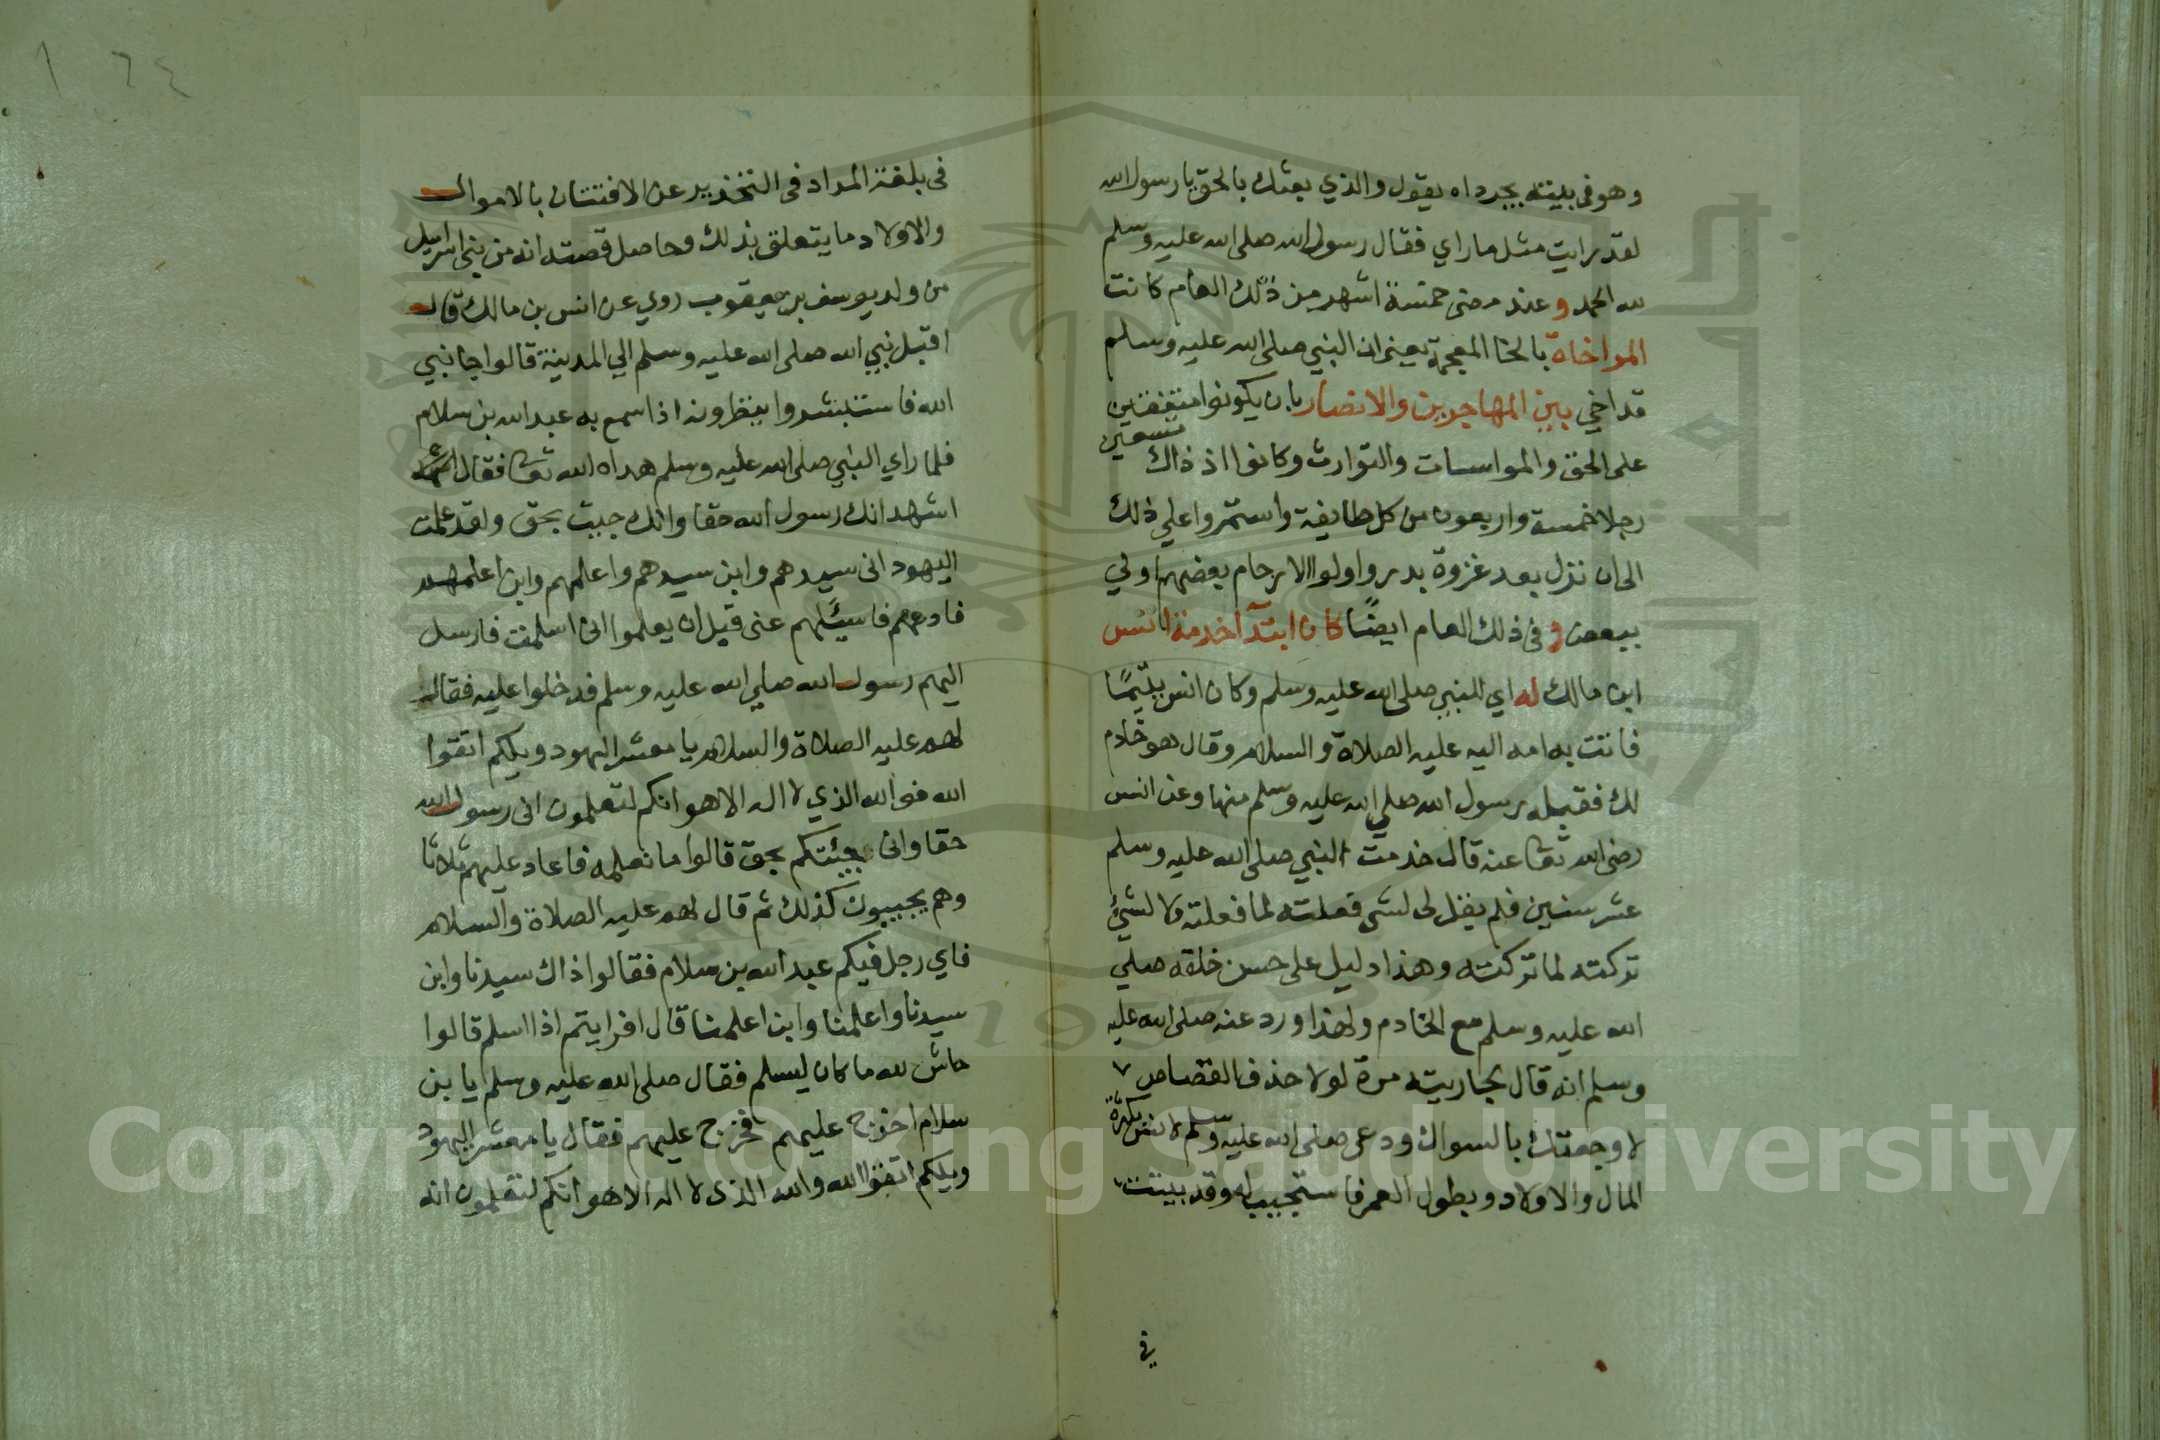 وهو في بيته يجر رداه يقول والذي بعثك بالحق يا رسول الله
لقد رايت مثل ما راي فقال رسول الله صلى الله عليه وسلم
لله الحمد وعند مضى خمسة اشهر من ذلك العام كانت
المواخاة بالخا المعجمة يعنى ان النبي صلى الله عليه وسلم
قد اخي بين المهاجرين والانصار بان يكونوا متفقين
على الحق والمواسات والتوارث وكانوا اذ ذاك تسعين
رجلا خمسة واربعون من كل طايفة واستمروا علي ذلك
الى ان نزل بعد غزوة بدر واولوا الارحام بعضهم اولي
ببعض و فى ذلك العام ايضًا كان ابتدآ خدمة انس
ابن مالك له اي للنبي صلى الله عليه وسلم وكان انس يتيمًا
فاتت به امه اليه عليه الصلاة والسلام وقال هو خادم
لك فقبله رسول الله صلي الله عليه وسلم منها وعن انس
رضى الله تعا عنه قال خدمت النبي صلى الله عليه وسلم
عشر سنين فلم يقل لى لشى فعلته لما فعلته ولا لشئ
تركته لما تركته وهذا دليل على حسن خلقه صلي
الله عليه وسلم مع الخادم ولهذا ورد عنه صلى الله عليه
وسلم انه قال لجاريته مرة لولا خذف القصاص
لاوجعتك بالسواك ودعى صلى الله عليه وسلم لانس بكثرة
المال والاولاد وبطول العمر فاستجيب له وقد بينت
في
١٦٤
فى بلغة المراد فى التحذير عن الافتتان بالاموال
والاولاد ما يتعلق بذلك وحاصل قصته انه من بنى اسراييل
من ولد يوسف بن يعقوب روي عن انس بن مالك قال
اقبل نبي الله صلى الله عليه وسلم الي المدينة قالوا جا نبي
الله فاستبشروا ينظرونه اذا سمع به عبد الله بن سلام
فلما راي النبي صلى الله عليه وسلم هداه الله تعا فقال
اشهد انك رسول الله حقا وانك جيت بحق ولقد علمت
اليهود انى سيدهم وابن سيدهم واعلمهم وابن اعلمهم
فادعهم فاسئلهم عنى قبل ان يعلموا انى اسلمت فارسل
اليهم رسول الله صلي الله عليه وسلم فدخلوا عليه فقال
لهم عليه الصلاة والسلام يا معشر اليهود ويلكم اتقوا
الله فوالله الذي لا اله الا هو انكم لتعلمون انى رسول الله
حقا وانى جئتكم بحق قالوا ما نعلمه فاعاد عليهم ثلاثا
وهم يجيبون كذلك ثم قال لهم عليه الصلاة والسلام
فاي رجل فيكم عبد الله بن سلام فقالوا ذاك سيدنا وابن
سيدنا واعلمنا وابن اعلمنا قال افرايتم اذا اسلم قالوا
حاش لله ما كان ليسلم فقال صلى الله عليه وسلم يا بن
سلام اخرج عليهم فخرج عليهم فقال يا معشر اليهود
ويلكم اتقوا الله والله الذى لا اله الا هو انكم لتعلمون انه
Copyright © King Saud University
1957